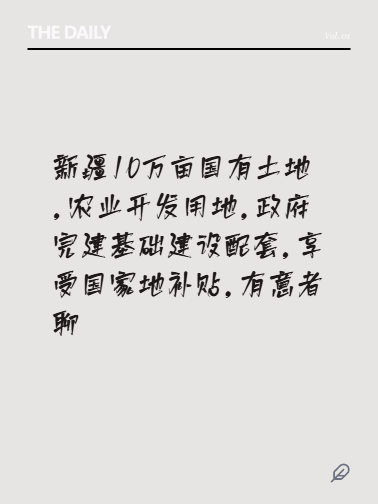 THE DAILY
Vol. 01
新疆10万亩国有土地
,农业开发用地,政府
完建基础建设配套,享
受国家地补贴,有意者
聊